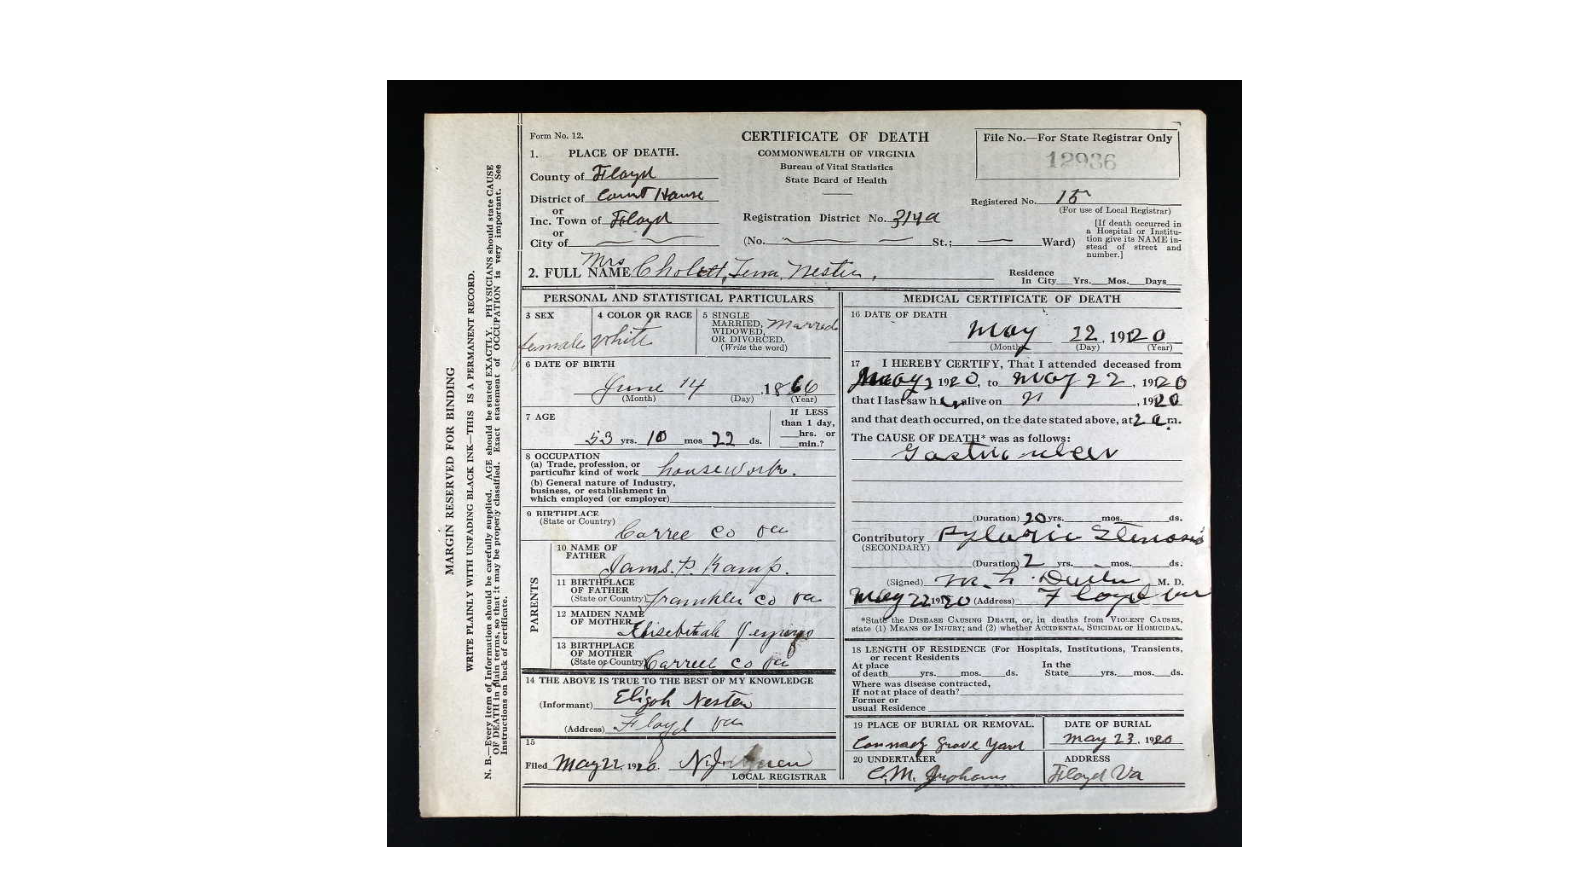 Form No. 12.
CERTIFICATE OF DEATH
COMMONWEALTH OF VIRGINIA
Bureau of Vital Statistics
State Board of Health
File No.—For State Registrar Only
12936
1. PLACE OF DEATH.
County of Floyd
District of Court House
or
Inc. Town of Floyd
or
City of
Registration District No. 314a
(No. St.; Ward)
Registered No. 15
(For use of Local Registrar)
[If death occurred in
a Hospital or Institu-
tion give its NAME in-
stead of street and
number.]
2. FULL NAME Mrs Nester.
Residence
In City Yrs. Mos. Days
PERSONAL AND STATISTICAL PARTICULARS
3 SEX
female
4 COLOR OR RACE
white
5 SINGLE
MARRIED,
WIDOWED,
OR DIVORCED.
(Write the word)
Married
6 DATE OF BIRTH
June 14, 1866
(Month) (Day) (Year)
7 AGE
53 yrs. 10 mos 22 ds.
If LESS
than 1 day,
hrs. or
min.?
8 OCCUPATION
(a) Trade, profession, or
particular kind of work housework.
(b) General nature of Industry,
business, or establishment in
which employed (or employer)
9 BIRTHPLACE
(State or Country)
Carroll Co Va
PARENTS
10 NAME OF
FATHER
James P.
11 BIRTHPLACE
OF FATHER
(State or Country) Franklin Co Va
12 MAIDEN NAME
OF MOTHER
13 BIRTHPLACE
OF MOTHER
(State or Country) Carroll Co Va
14 THE ABOVE IS TRUE TO THE BEST OF MY KNOWLEDGE
(Informant) Elijah Nester
(Address) Floyd Va
15
Filed May 22 1920. N.J.
LOCAL REGISTRAR
MEDICAL CERTIFICATE OF DEATH
16 DATE OF DEATH
May 22, 1920
(Month) (Day) (Year)
17 I HEREBY CERTIFY, That I attended deceased from
May 1920, to May 22, 1920
that I last saw h alive on 21, 1920
and that death occurred, on the date stated above, at 2 a m.
The CAUSE OF DEATH* was as follows:
Gastric ulcer
(Duration) 20 yrs. mos. ds.
Contributory Pyloric Stenosis
(SECONDARY)
(Duration) 2 yrs. mos. ds.
(Signed) M. L. M. D.
May 22 1920 (Address) Floyd Va
*State the DISEASE CAUSING DEATH, or, in deaths from VIOLENT CAUSES,
state (1) MEANS OF INJURY; and (2) whether ACCIDENTAL, SUICIDAL or HOMICIDAL.
18 LENGTH OF RESIDENCE (For Hospitals, Institutions, Transients,
or recent Residents
At place
of death yrs. mos. ds.
In the
State yrs. mos. ds.
Where was disease contracted,
If not at place of death?
Former or
usual Residence
19 PLACE OF BURIAL OR REMOVAL.
Grove Yard
DATE OF BURIAL
May 23, 1920
20 UNDERTAKER
C.M.
ADDRESS
Floyd Va
MARGIN RESERVED FOR BINDING
WRITE PLAINLY WITH UNFADING BLACK INK—THIS IS A PERMANENT RECORD.
N. B.—Every item of information should be carefully supplied. AGE should be stated EXACTLY. PHYSICIANS should state CAUSE
OF DEATH in plain terms, so that it may be properly classified. Exact statement of OCCUPATION is very important. See
instructions on back of certificate.